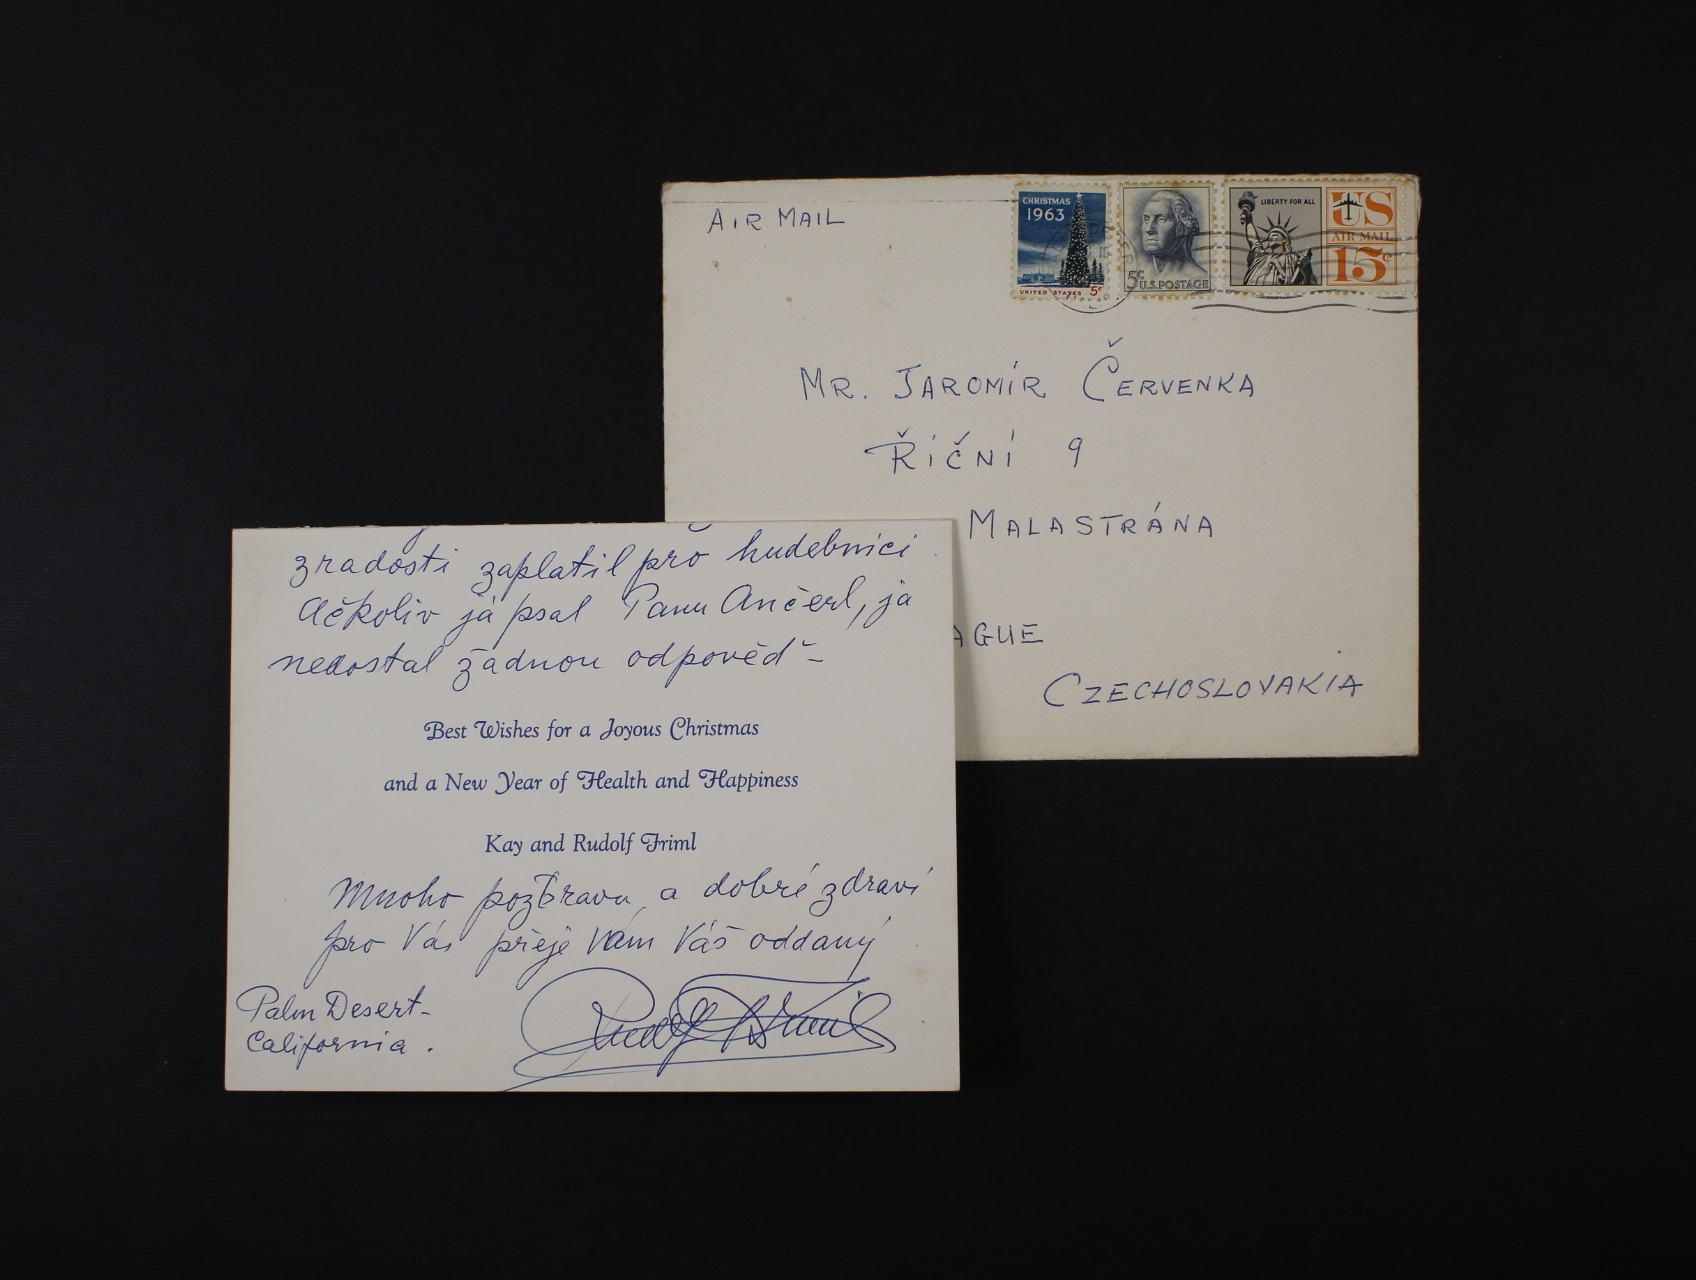 AIR MAIL
CHRISTMAS
1963
UNITED STATES 5c
5c
U.S. POSTAGE
LIBERTY FOR ALL
US
AIR MAIL
15c
MR. JAROMÍR ČERVENKA
ŘÍČNÍ 9
MALASTRÁNA
AGUE
CZECHOSLOVAKIA
zradosti zaplatil pro hudebnici
Ačkoliv já psal Panu Ančerl, ja
nedostal žádnou odpověď –
Best Wishes for a Joyous Christmas
and a New Year of Health and Happiness
Kay and Rudolf Friml
Mnoho pozdravu a dobré zdraví
pro Vás přeje Vám Váš oddaný
Palm Desert –
California .
Rudolf Friml